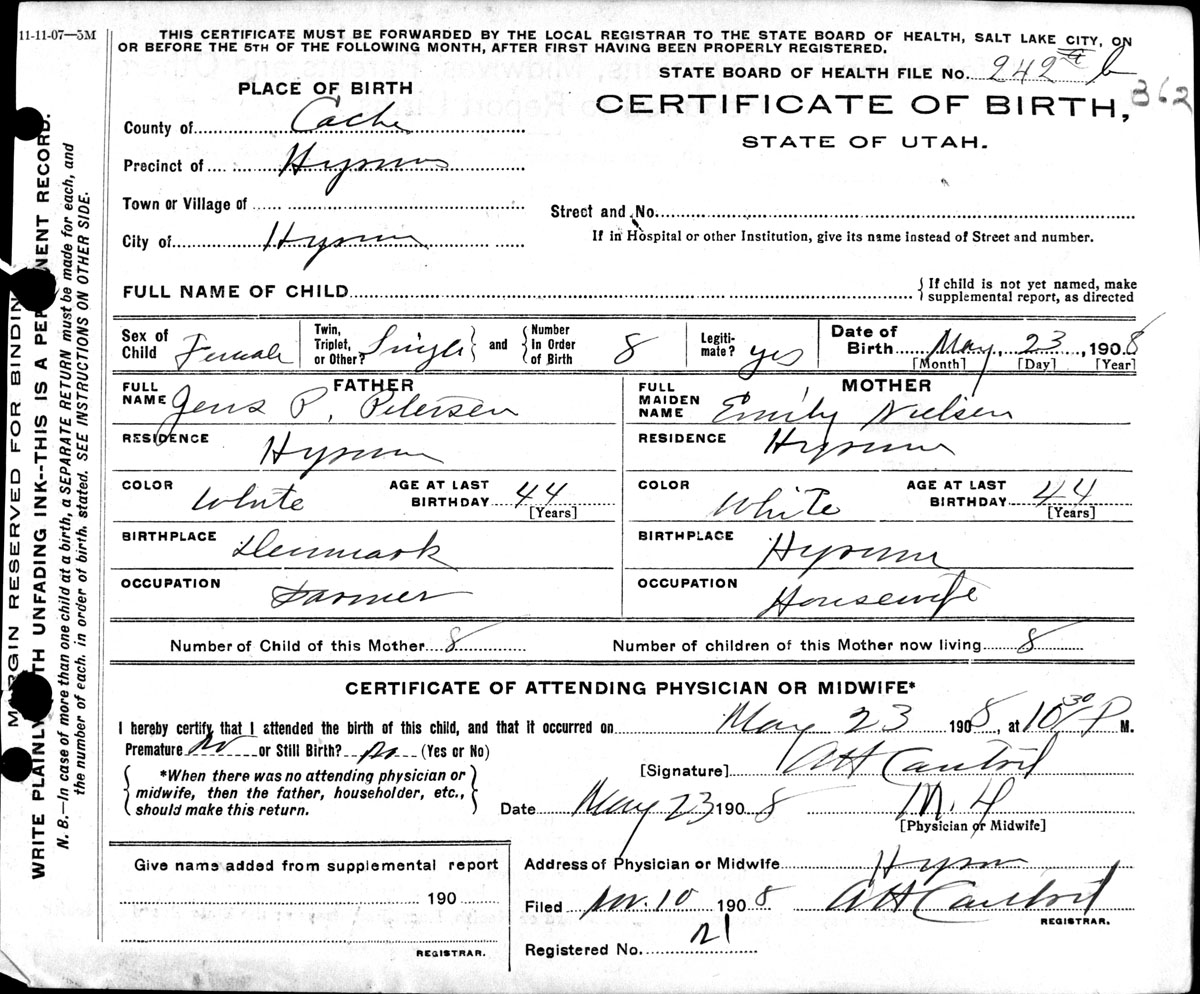 11-11-07—5M
THIS CERTIFICATE MUST BE FORWARDED BY THE LOCAL REGISTRAR TO THE STATE BOARD OF HEALTH, SALT LAKE CITY, ON
OR BEFORE THE 5TH OF THE FOLLOWING MONTH, AFTER FIRST HAVING BEEN PROPERLY REGISTERED.
STATE BOARD OF HEALTH FILE No. 242 b
362
PLACE OF BIRTH
CERTIFICATE OF BIRTH,
STATE OF UTAH.
County of Cache
Precinct of Hyrum
Town or Village of
Street and No.
City of Hyrum
If in Hospital or other Institution, give its name instead of Street and number.
FULL NAME OF CHILD
If child is not yet named, make
supplemental report, as directed
Sex of Child Female
Twin, Triplet, or Other? Single and Number In Order of Birth 8
Legiti-mate? yes
Date of Birth May, 23, 1908
[Month] [Day] [Year]
FATHER
FULL NAME Jens P. Petersen
RESIDENCE Hyrum
COLOR White AGE AT LAST BIRTHDAY 44
[Years]
BIRTHPLACE Denmark
OCCUPATION Farmer
MOTHER
FULL MAIDEN NAME Emily Nielsen
RESIDENCE Hyrum
COLOR White AGE AT LAST BIRTHDAY 44
[Years]
BIRTHPLACE Hyrum
OCCUPATION Housewife
Number of Child of this Mother 8 Number of children of this Mother now living 8
CERTIFICATE OF ATTENDING PHYSICIAN OR MIDWIFE*
I hereby certify that I attended the birth of this child, and that it occurred on May 23 1908, at 10 30 P M.
Premature No or Still Birth? No (Yes or No)
*When there was no attending physician or
midwife, then the father, householder, etc.,
should make this return.
[Signature] AH Cantril
Date May 23 1908 M.D
[Physician or Midwife]
Give name added from supplemental report
190
REGISTRAR.
Address of Physician or Midwife Hyrum
Filed Nov. 10 1908 AH Cantril
REGISTRAR.
Registered No. 21
MARGIN RESERVED FOR BINDING
WRITE PLAINLY WITH UNFADING INK--THIS IS A PERMANENT RECORD.
N. B.—In case of more than one child at a birth, a SEPARATE RETURN must be made for each, and
the number of each, in order of birth, stated. SEE INSTRUCTIONS ON OTHER SIDE.